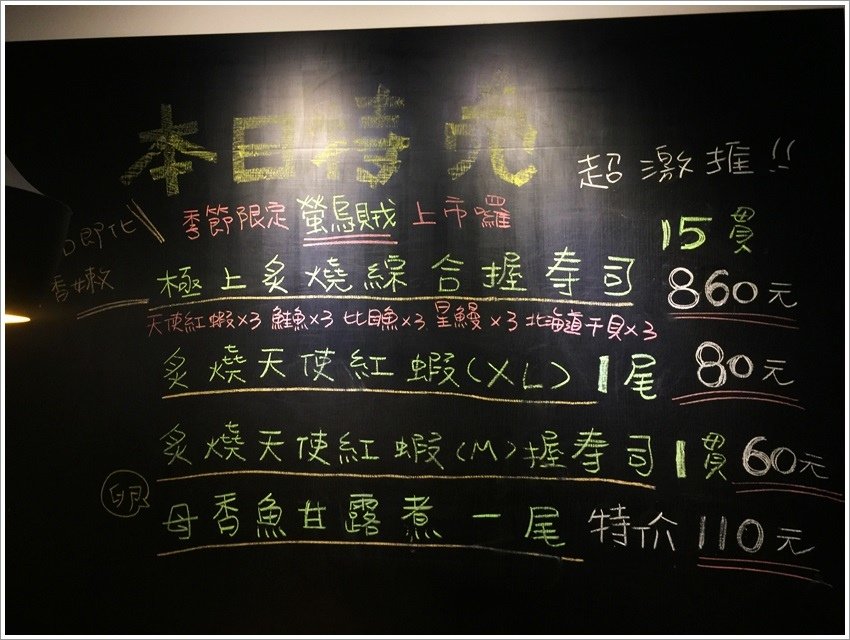 本日特
超激推!!
季節限定 螢烏賊 上市囉
香嫩
極上炙燒綜合握壽司 15貫 860元
天使紅蝦×3 鮭魚×3 比目魚×3 星鰻×3 北海道干貝×3
炙燒天使紅蝦(XL) 1尾 80元
炙燒天使紅蝦(M)握壽司 1貫 60元
卵
母香魚甘露煮 一尾 特价 110元